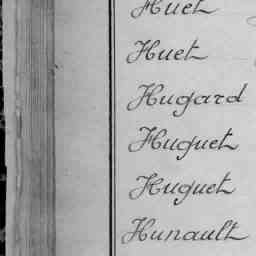 Huet
Huet
Hugard
Huguet
Huguet
Hunault